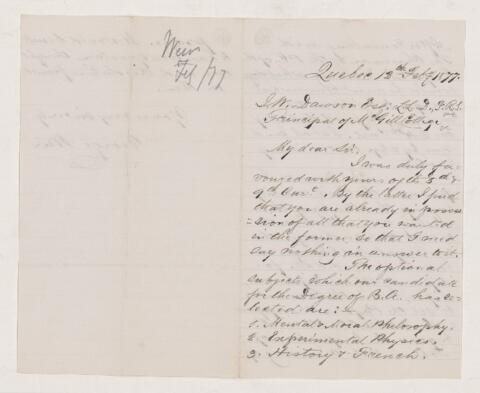 Weir
Feb/77
Quebec 12th Feby 1877.
J. W. Dawson Esq. LL.D., F.R.S.
Principal of McGill College
&c
My dear Sir,
I was duly fa-
voured with yours of the 5th &
9th Curt. By the latter I find
that you are already in posses
=sion of all that you wanted
in the former so that I need
say nothing in answer to it.
The optional
subjects which our candidate
for the Degree of B.A. has se-
lected are:—
1. Mental & Moral Philosophy.
2. Experimental Physics.
3. History & French.